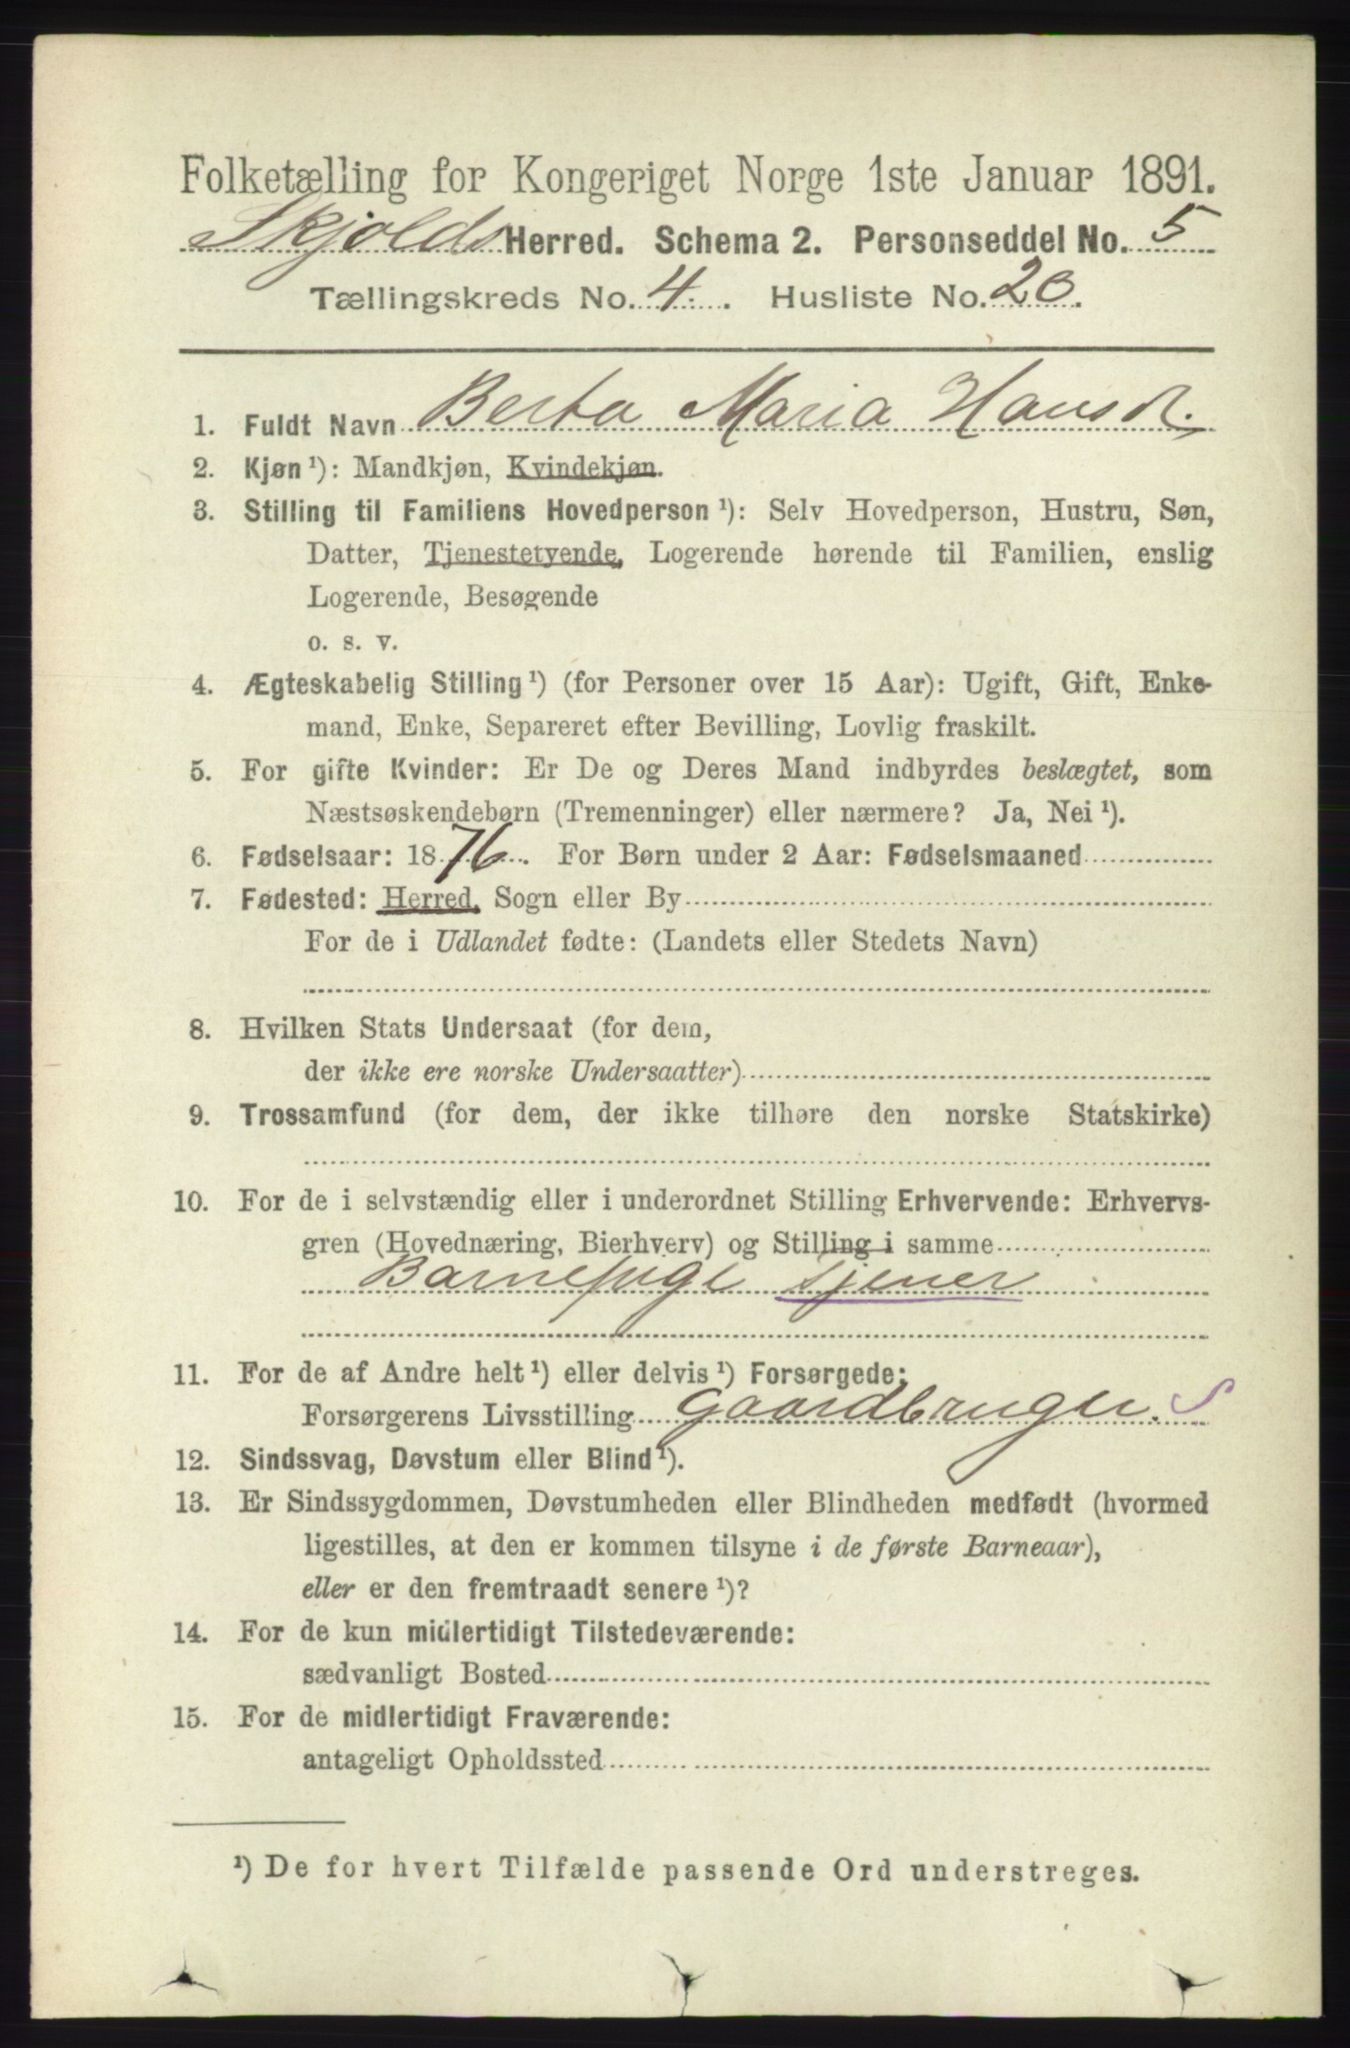 Folketælling for Kongeriget Norge 1ste Januar 1891.
Skjolds Herred. Schema 2. Personseddel No. 5
Tællingskreds No. 4. Husliste No. 20.
1. Fuldt Navn Berta Maria Hansd.
2. Kjøn ¹): Mandkjøn, Kvindekjøn.
3. Stilling til Familiens Hovedperson ¹): Selv Hovedperson, Hustru, Søn,
Datter, Tjenestetyende, Logerende hørende til Familien, enslig
Logerende, Besøgende
o. s. v.
4. Ægteskabelig Stilling ¹) (for Personer over 15 Aar): Ugift, Gift, Enke-
mand, Enke, Separeret efter Bevilling, Lovlig fraskilt.
5. For gifte Kvinder: Er De og Deres Mand indbyrdes beslægtet, som
Næstsøskendebørn (Tremenninger) eller nærmere? Ja, Nei ¹).
6. Fødselsaar: 1876. For Børn under 2 Aar: Fødselsmaaned
7. Fødested: Herred, Sogn eller By
For de i Udlandet fødte: (Landets eller Stedets Navn)
8. Hvilken Stats Undersaat (for dem,
der ikke ere norske Undersaatter)
9. Trossamfund (for dem, der ikke tilhøre den norske Statskirke)
10. For de i selvstændig eller i underordnet Stilling Erhvervende: Erhvervs-
gren (Hovednæring, Bierhverv) og Stilling i samme
Barnepige Tjener
11. For de af Andre helt ¹) eller delvis ¹) Forsørgede:
Forsørgerens Livsstilling Gaardbruger. S
12. Sindssvag, Døvstum eller Blind ¹).
13. Er Sindssygdommen, Døvstumheden eller Blindheden medfødt (hvormed
ligestilles, at den er kommen tilsyne i de første Barneaar),
eller er den fremtraadt senere ¹)?
14. For de kun midlertidigt Tilstedeværende:
sædvanligt Bosted
15. For de midlertidigt Fraværende:
antageligt Opholdssted
¹) De for hvert Tilfælde passende Ord understreges.